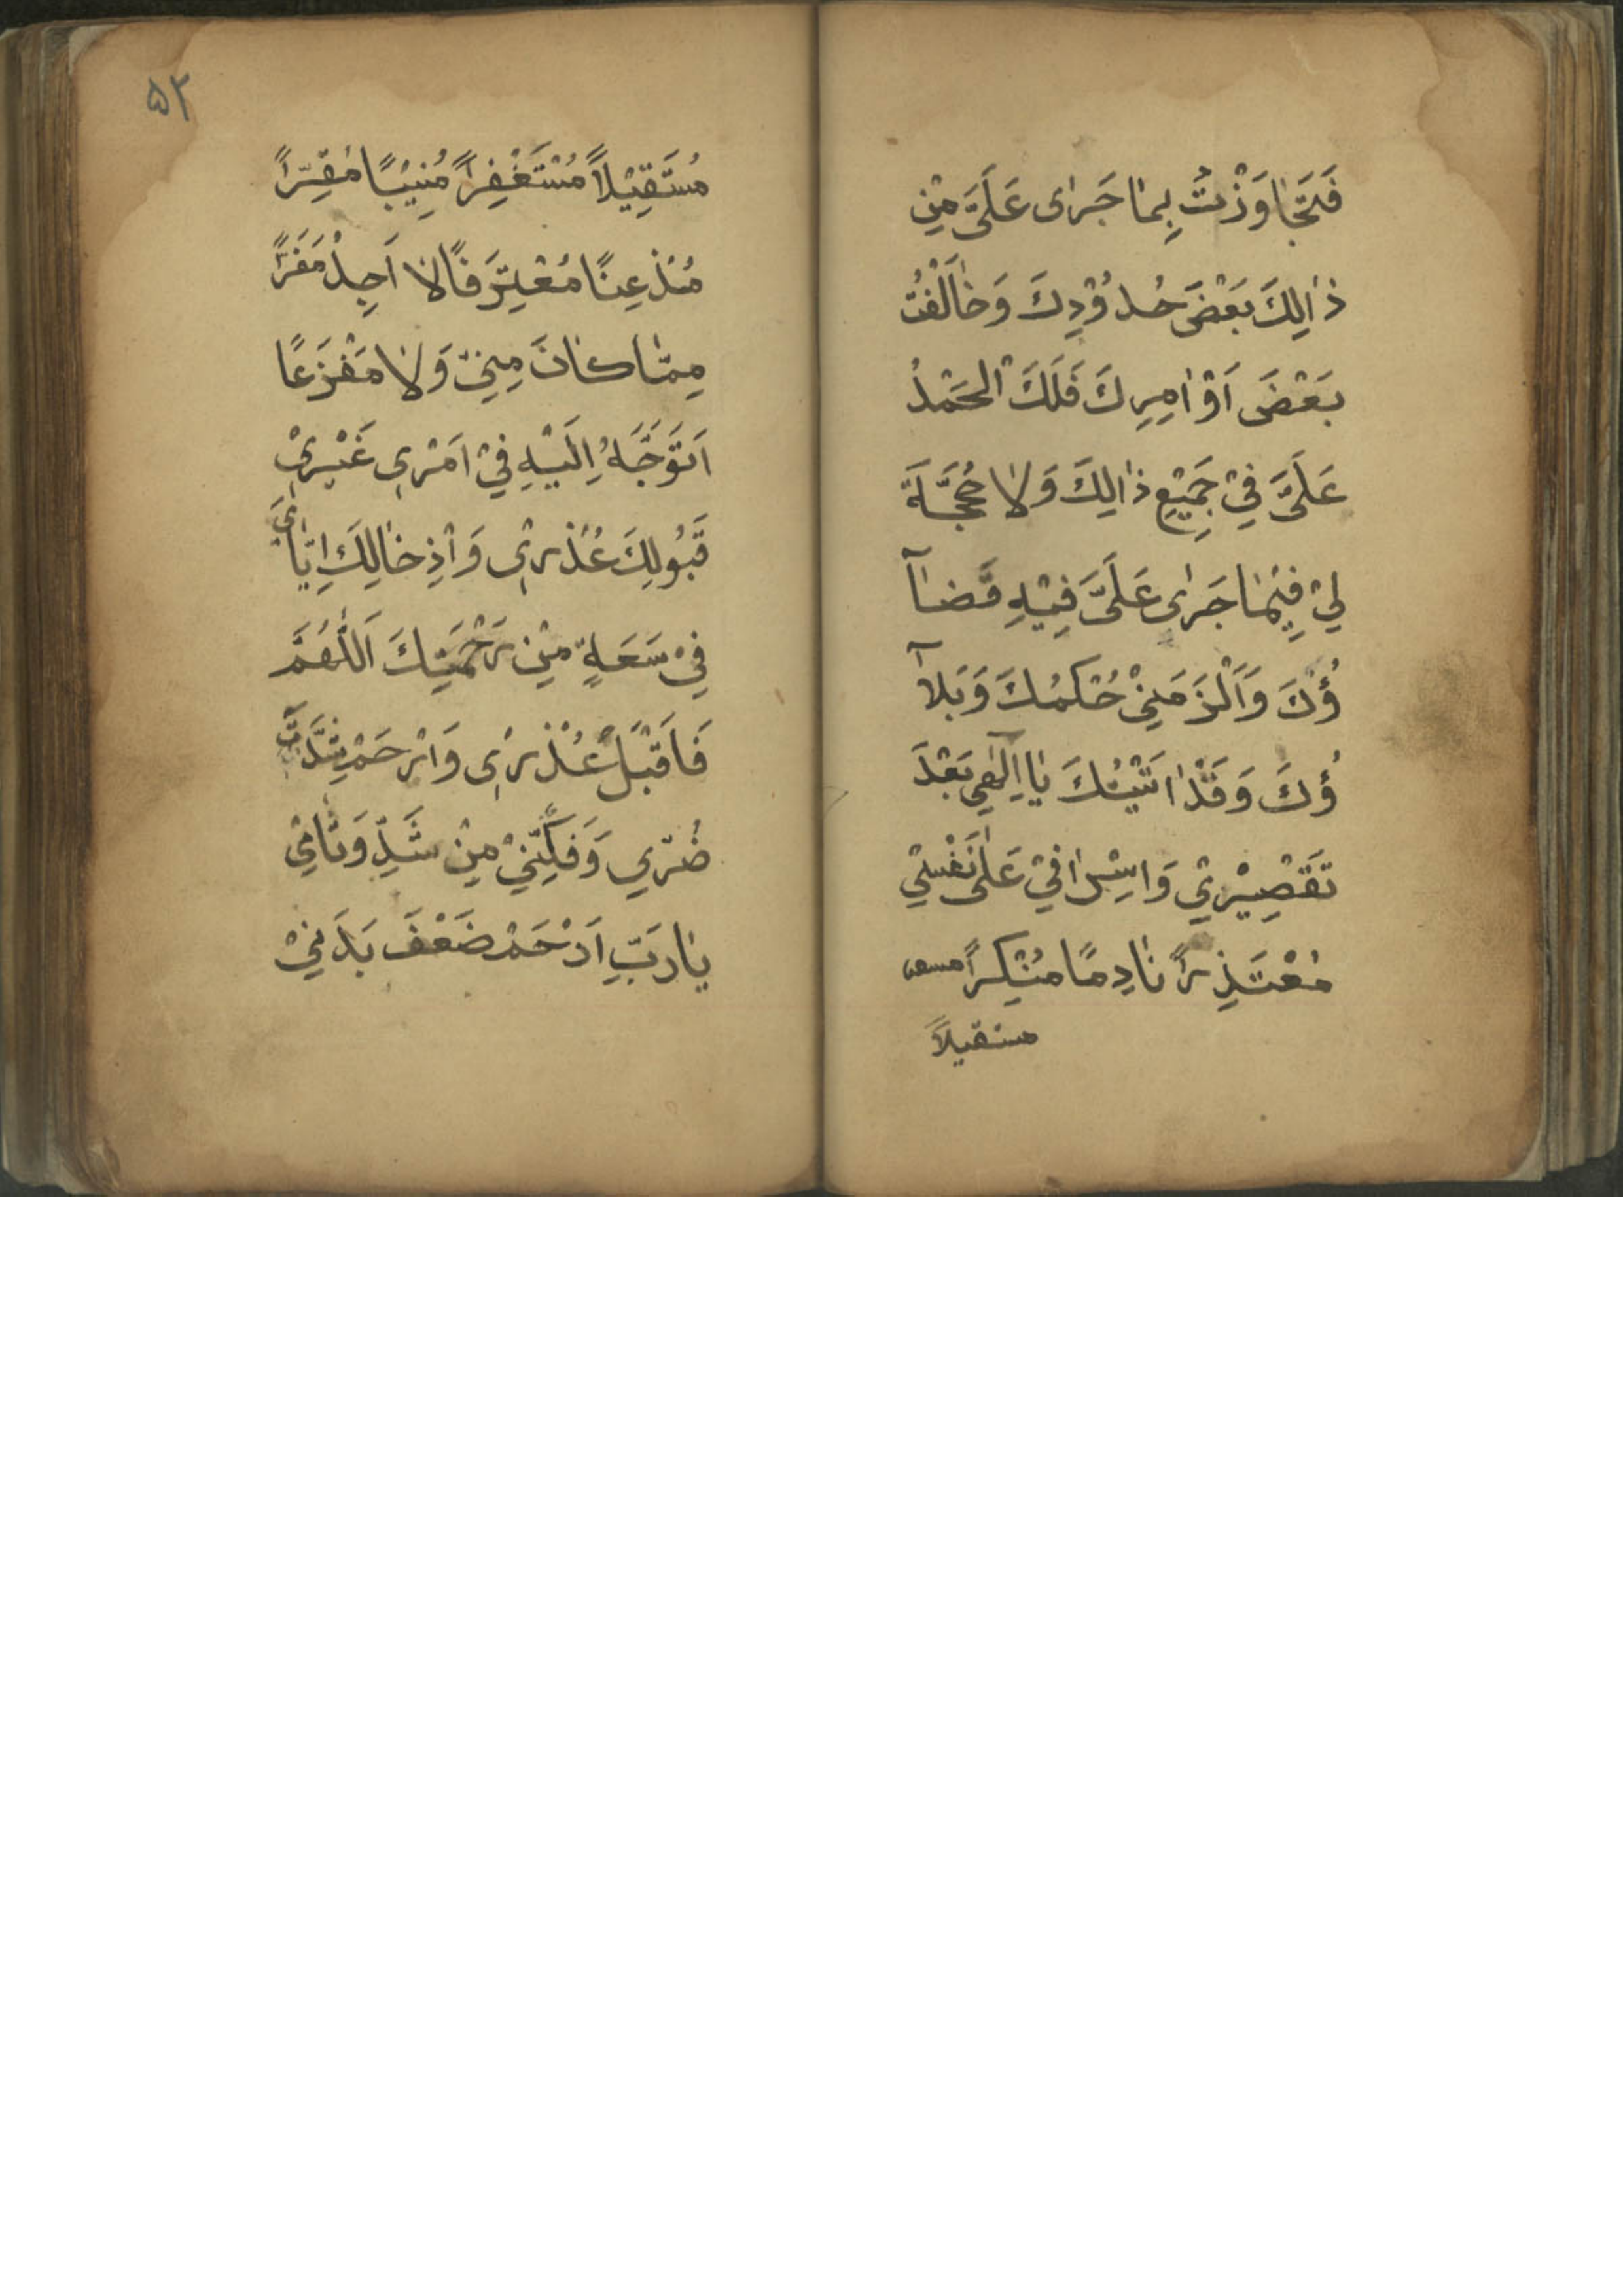 فَتَجَاوَزْتُ بِمَا جَرٰى عَلَيَّ مِنْ
ذٰالِكَ بَعْضَ حُدُوْدِكَ وَخَالَفْتُ
بَعْضَ اَوْامِرِكَ فَلَكَ الْحَمْدُ
عَلَيَّ فِيْ جَمِيْعِ ذٰالِكَ وَلَا حُجَّةَ
لِيْ فِيْمَا جَرٰى عَلَيَّ فِيْهِ قَضَآ
ؤُكَ وَاَلْزَمَنِيْ حُكْمُكَ وَبَلآ
ؤُكَ وَقَدْ اَتَيْتُكَ يَا اِلٰهِي بَعْدَ
تَقْصِيْرِيْ وَاِسْرَافِيْ عَلٰى نَفْسِيْ
مُعْتَذِرًا نَادِمًا مُنْكِسِرًا
مستقيلاً
۵۲
مُسْتَقِيْلاً مُسْتَغْفِرًا مُنِيْبًا مُقِرًّا
مُذْعِنًا مُعْتَرِفًا لَا اَجِدُ مَفَرًّا
مِمَّا كَانَ مِنِّيْ وَلَا مَفْزَعًا
اَتَوَجَّهُ اِلَيْهِ فِيْ اَمْرِي غَيْرِيْ
قَبُولِكَ عُذْرِيْ وَاِدْخَالِكَ اِيَّايَ
فِيْ سَعَةٍ مِنْ رَحْمَتِكَ اَللّٰهُمَّ
فَاقْبَلْ عُذْرِيْ وَارْحَمْ شِدَّةَ
ضُرّي وَفَكِّنِيْ مِنْ شَدِّ وَثَاقِيْ
يَا رَبِّ اَرْحَمْ ضَعْفَ بَدَنِيْ